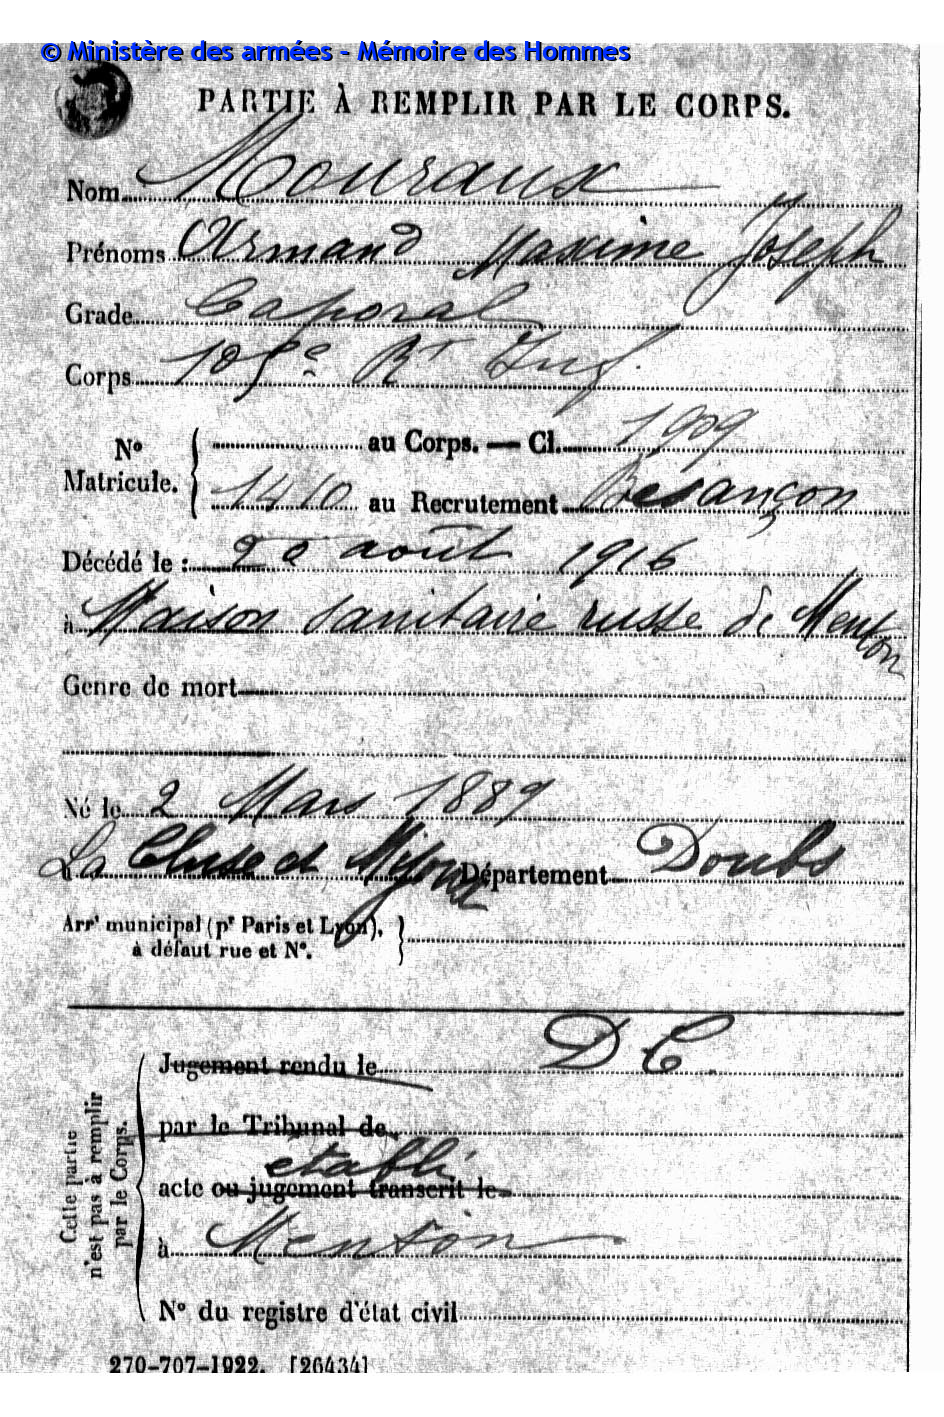 © Ministère des armées - Mémoire des Hommes
PARTIE À REMPLIR PAR LE CORPS.
Nom Mouraux
Prénoms Armand Maxime Joseph
Grade Caporal
Corps 105e Rt Inf
No Matricule. { au Corps. — Cl. 1909
1410 au Recrutement Besançon
Décédé le : 20 août 1916
à Maison sanitaire russe de Menton
Genre de mort
Né le 2 Mars 1889
à La Cluse et Mijoux Département Doubs
Arrt municipal (pr Paris et Lyon),
à défaut rue et No.
Jugement rendu le D C
par le Tribunal de
établi
acte ou jugement transcrit le
à Menton
No du registre d'état civil
Cette partie
n'est pas à remplir
par le Corps.
270-707-1922. [26434]